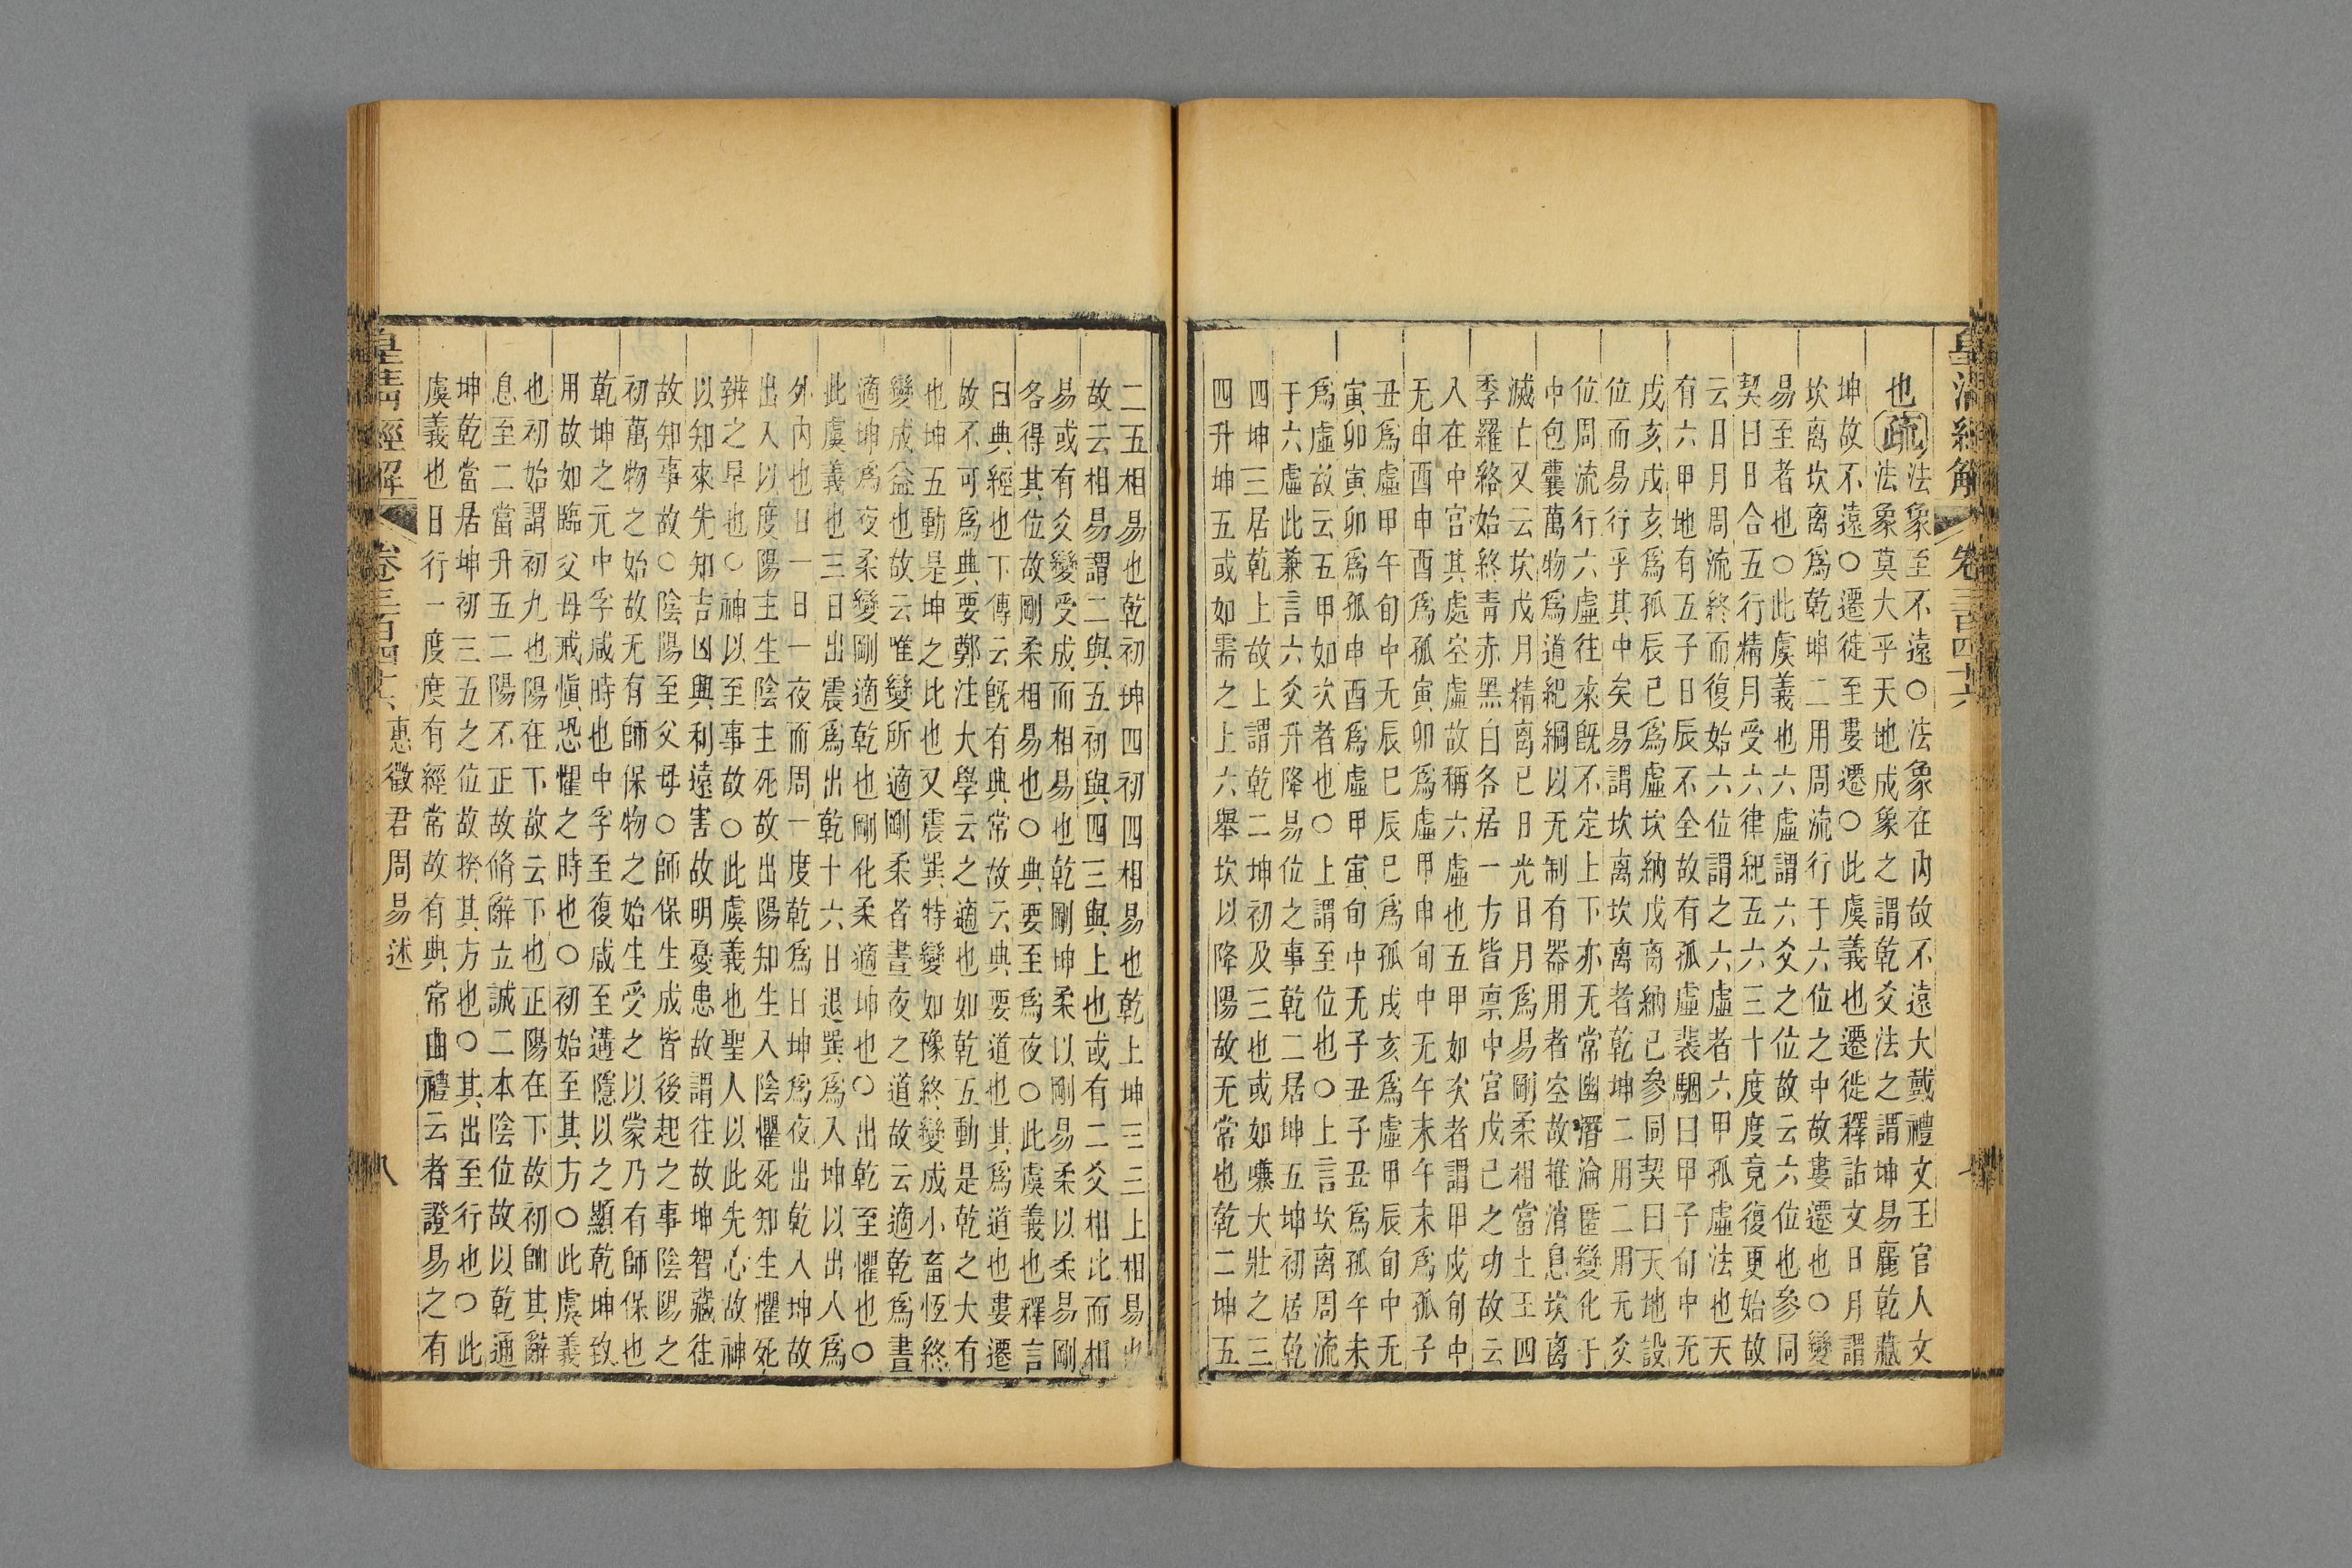 皇清經解 卷三百四十六 七
也疏法象至不遠○法象在内故不遠大戴禮文王官人文
法象莫大乎天地成象之謂乾爻法之謂坤易麗乾藏
坤故不遠○遷徙至婁遷○此虞義也遷徙釋詁文日月謂
坎离坎离爲乾坤二用周流行于六位之中故婁遷也○變
易至者也○此虞義也六虛謂六爻之位故云六位也參同
契曰日合五行精月受六律紀五六三十度度竟復更始故
云日月周流終而復始六位謂之六虛者六甲孤虛法也天
有六甲地有五子日辰不全故有孤虛裴駰曰甲子旬中无
戌亥戌亥爲孤辰巳爲虛坎納戊离納己參同契曰天地設
位而易行乎其中矣易謂坎离坎离者乾坤二用二用无爻
位周流行六虛往來旣不定上下亦无常幽潛淪匿變化于
中包囊萬物爲道紀綱以无制有器用者空故推消息坎离
滅亡又云坎戊月精离己日光日月爲易剛柔相當土王四
季羅絡始終青赤黑白各居一方皆禀中宮戊己之功故云
入在中宮其處空虛故稱六虛也五甲如次者謂甲戌旬中
无申酉申酉爲孤寅卯爲虛甲申旬中无午未午未爲孤子
丑爲虛甲午旬中无辰巳辰巳爲孤戌亥爲虛甲辰旬中无
寅卯寅卯爲孤申酉爲虛甲寅旬中无子丑子丑爲孤午未
爲虛故云五甲如次者也○上謂至位也○上言坎离周流
于六虛此兼言六爻升降易位之事乾二居坤五坤初居乾
四坤三居乾上故上謂乾二坤初及三也或如嗛大壯之三
四升坤五或如需之上六舉坎以降陽故无常也乾二坤五
二五相易也乾初坤四初四相易也乾上坤三三上相易也
故云相易謂二與五初與四三與上也或有二爻相比而相
易或有爻變受成而相易也乾剛坤柔以剛易柔以柔易剛
各得其位故剛柔相易也○典要至爲夜○此虞義也釋言
曰典經也下傳云旣有典常故云典要道也其爲道也婁遷
故不可爲典要鄭注大學云之適也如乾五動是乾之大有
也坤五動是坤之比也又震巽特變如豫終變成小畜恆終
變成益也故云唯變所適剛柔者晝夜之道故云適乾爲晝
適坤爲夜柔變剛適乾也剛化柔適坤也○出乾至懼也○
此虞義也三日出震爲出乾十六日退巽爲入坤以出人爲
外内也日一日一夜而周一度乾爲日坤爲夜出乾入坤故
出入以度陽主生陰主死故出陽知生入陰懼死知生懼死
辨之早也○神以至事故○此虞義也聖人以此先心故神
以知來先知吉凶興利遠害故明憂患故謂往故坤智藏往
故知事故○陰陽至父母○師保生成皆後起之事陰陽之
初萬物之始故无有師保物之始生受之以蒙乃有師保也
乾坤之元中孚咸時也中孚至復咸至遘隱以之顯乾坤致
用故如臨父母戒愼恐懼之時也○初始至其方○此虞義
也初始謂初九也陽在下故云下也正陽在下故初帥其辭
息至二當升五二陽不正故脩辭立誠二本陰位故以乾通
坤乾當居坤初三五之位故揆其方也○其出至行也○此
虞義也日行一度度有經常故有典常曲禮云者證易之有
皇清經解 卷三百四十六 惠徵君周易述 八